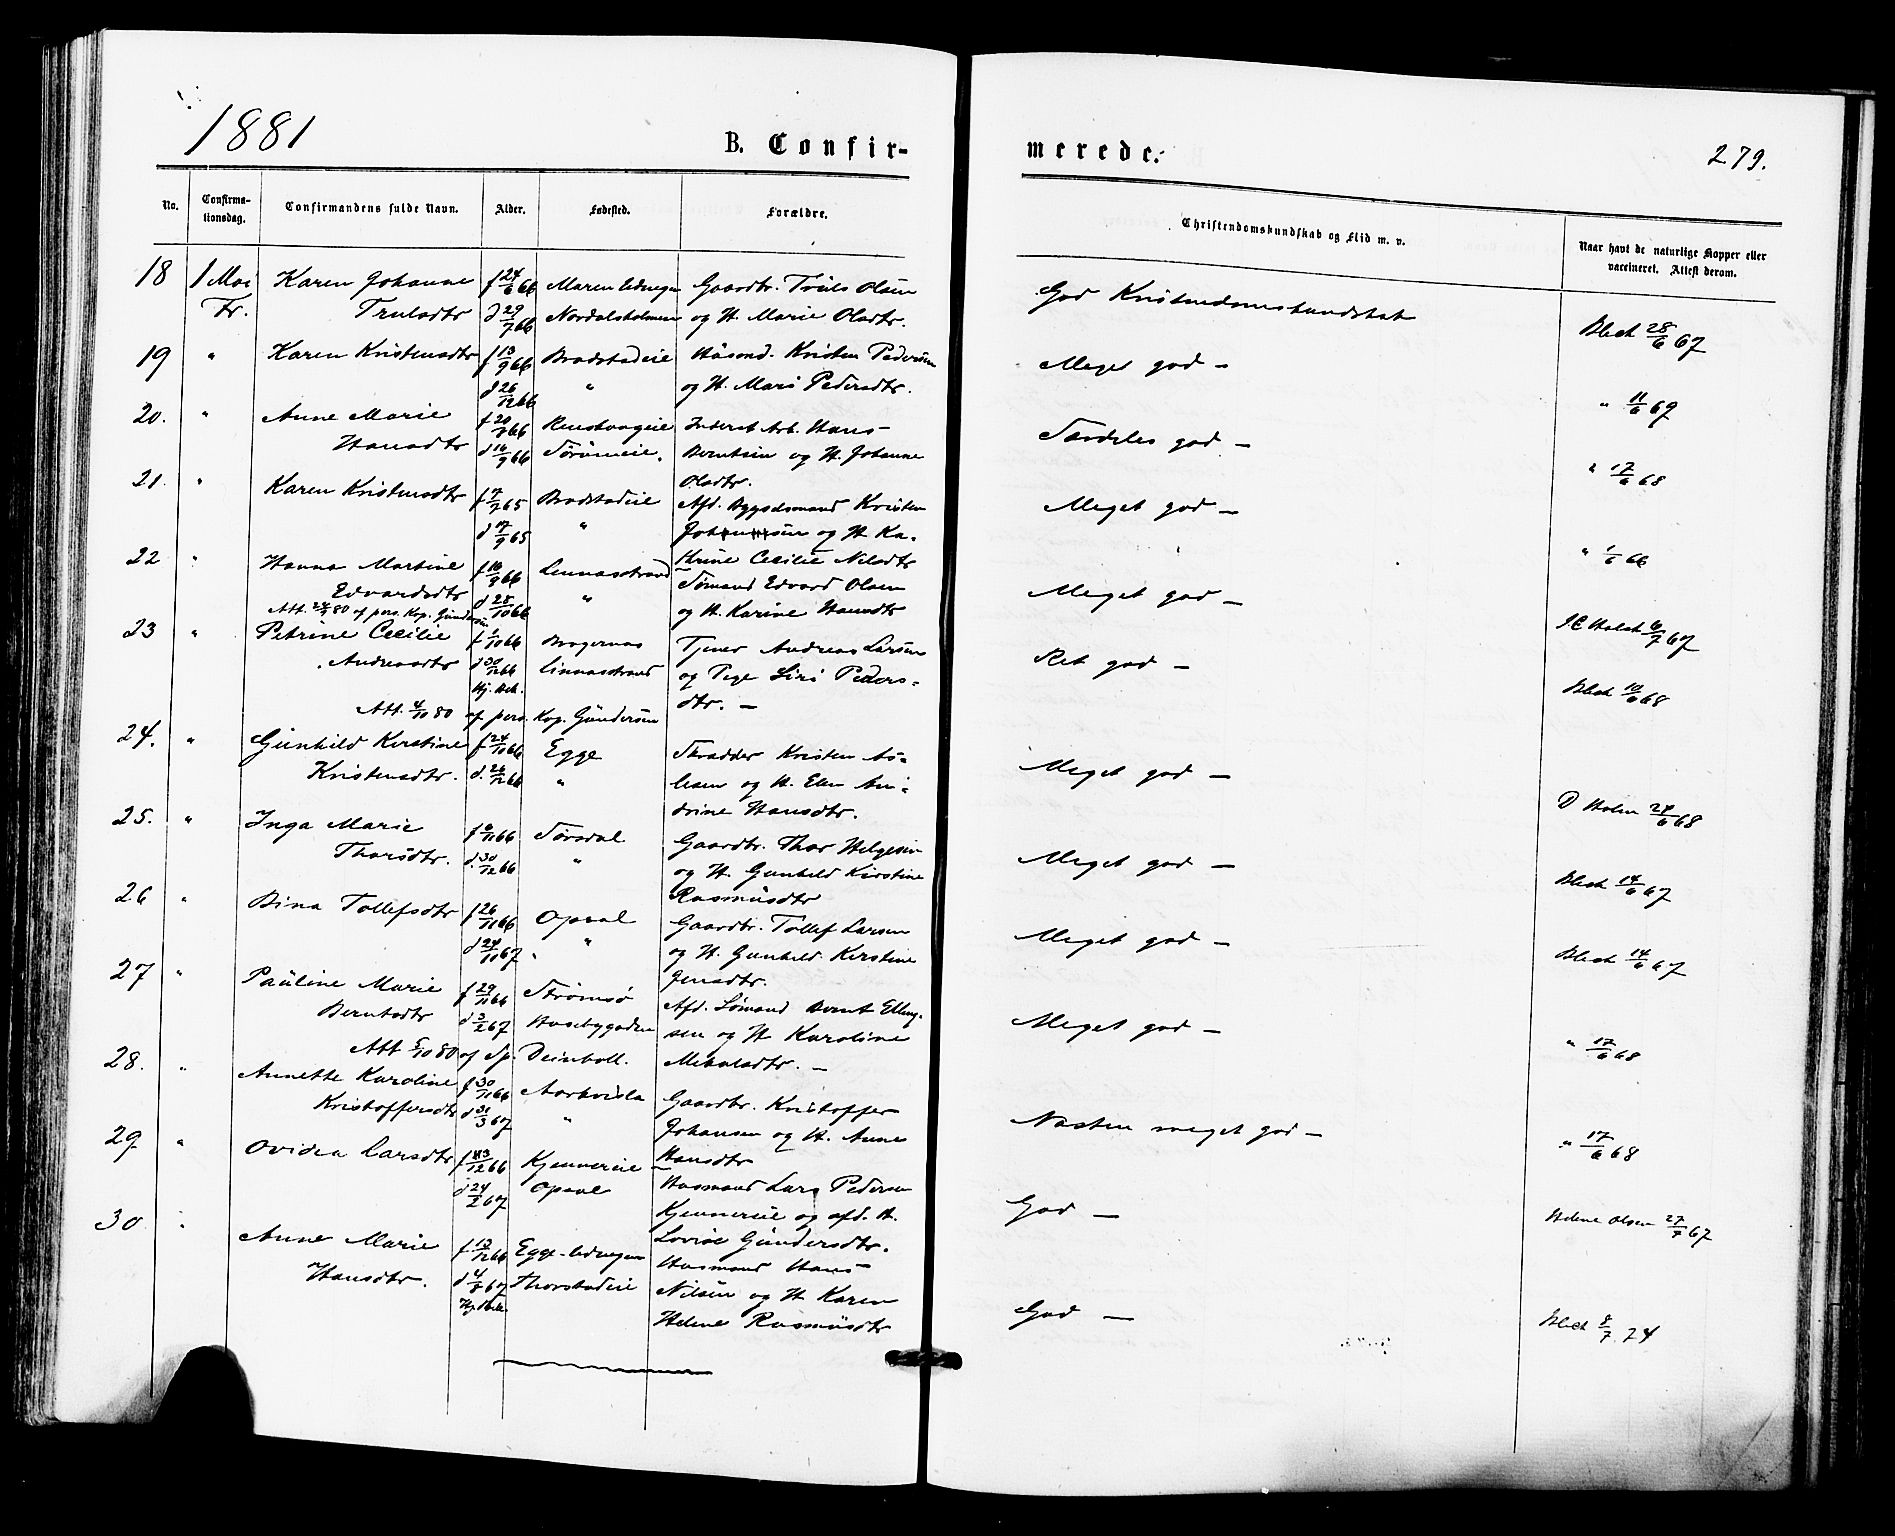 1881
B. Confir-
merede.
279.
No.
Confirma-
tionsdag.
Confirmandens fulde Navn.
Alder.
Fødested.
Forældre.
Christendomskundskab og Flid m. v.
Naar havt de naturlige Kopper eller
vaccineret. Attest derom.
18 1 Mai Karen Johanne f 24/6 66 Maren ledvogen Gaardbr. Truls Olsen God Kristendomskundskab
Fr. Trulsdtr d 29/7 66 Nordalsholmen og H. Marie Olsdtr. Blich 28/6 67
19 " Karen Kristensdtr f 13/9 66 Bradstadeie Husmd. Kristen Pedersen Meget god -
d 26/12 66 " og H. Mari Pedersdtr. " 11/6 69
20. " Anne Marie f 20/ 66 Inderst Arb. Hans Særdeles god -
Hansdtr d 16/9 66 Berntsen og H. Johanne " 17/6 68
21. " Karen Kristensdtr f 7/7 65 Bradstadeie Olsdtr.
Afd. Bygselmand Kristen Meget god -
d 17/9 65 " Johannesen og H Ka- " 1/6 66
22 " Hanna Martine f 16/9 66 Linnesstrand thrine Cecilie Nilsdtr
Edvardsdtr d 28/10 66 " Sømand Edvard Olsen Meget god -
Att. 24/9 80 af pers. Kap. Gundersen og H. Karine Hansdtr J C Holst 6/7 67
23 " Petrine Cecilie f 1/10 66 Bragernæs Tjener Andreas Larsen Ret god -
Andreasdtr d 30/12 66 Linnesstrand og Pige Siri Peders- Blich 10/6 68
Hj. Bek.
dtr. -
Att. 4/10 80 af pers. Kap. Gundersen
24. " Gunhild Kirstine f 24/10 66 Egge Skrædder Kristen As- Meget god -
Kristensdtr. d. 26/12 66 " lesen og H. Ellen An-
drine Hansdtr. O Holm 24/6 68
25. " Inga Marie f 6/11 66 Sørsdal Gaardbr. Thor Helgesen Meget god -
Thorsdtr. d. 30/12 66 " og H. Gunhild Kirstine Blich 14/6 67
26 " Bina Tollefsdtr f 26/11 66 Opsal Rasmusdtr
Gaardbr. Tollef Larsen Meget god -
d 24/ 67 " og H. Gunhild Kirstine Blich 14/6 67
27 " Pauline Marie f 29/11 66 Strømsø Jensdtr.
Berntsdtr d 3/2 67 Husebygaden Afd. Sømand Bernt Elling- Meget god -
sen og H Karoline " 17/6 68
Att 5/10 80 af Sp. Deinboll. Mekalsdtr. -
28. " Annette Karoline f 30/11 66 Aarkvisla Gaardbr. Kristoffer
Kristoffersdtr d 31/3 67 " Johansen og H. Anne Næsten meget god -
Hansdtr " 17/6 68
29 " Ovidia Larsdtr f 13/12 66 Kjennereie Husmand Lars Pedersen
d 24/2 67 Opsal Kjennereie og afd. H. God -
Lovise Gundersdtr. Helene Olsen 27/7 67
30 " Anne Marie f 13/12 66 Egge-ledvogen Husmand Hans
Hansdtr. d 4/ 67 Thorstadeie Nilsen og H Karen God -
Hj. dbt. Helene Rasmusdtr Blich 8/7 74